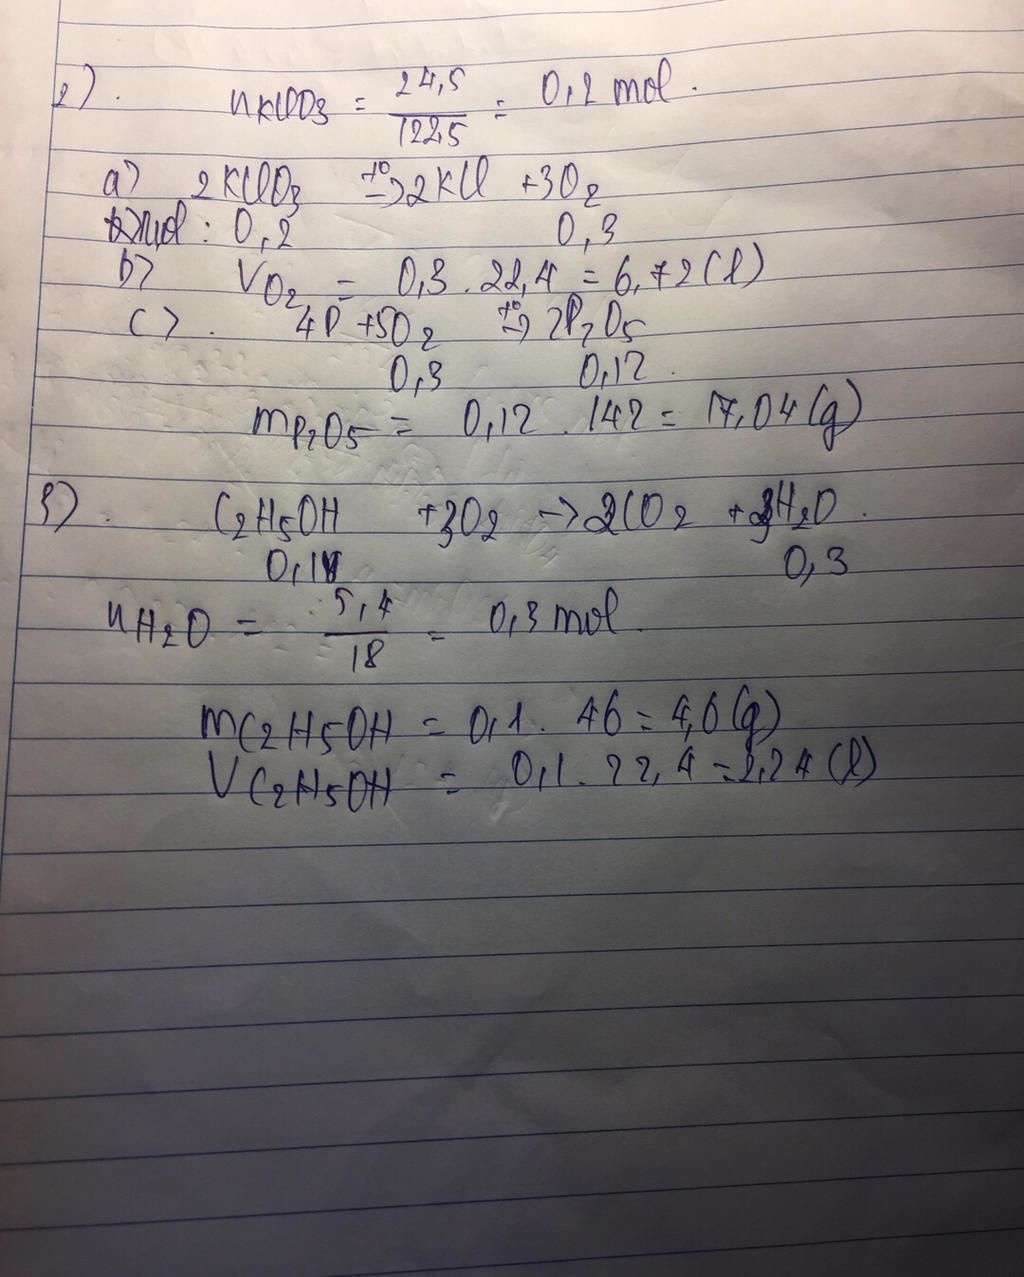 2). nKClO3 = 24,5/122,5 = 0,2 mol.
a) 2KClO3 t°→ 2KCl + 3O2
mol : 0,2 0,3
b) VO2 = 0,3 . 22,4 = 6,72 (l)
c). 4P + 5O2 t°→ 2P2O5
0,3 0,12.
mP2O5 = 0,12 . 142 = 17,04 (g)
3). C2H5OH + 3O2 → 2CO2 + 3H2O.
0,1 0,3
nH2O = 5,4/18 = 0,3 mol.
mC2H5OH = 0,1 . 46 = 4,6 (g)
VC2H5OH = 0,1 . 22,4 = 2,24 (l)